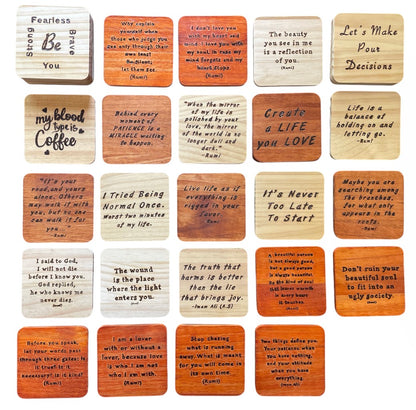 Fearless
Strong
Be
Brave
You
Why explain
yourself when
those who judge you
are only through their
own least
let them see.
(Rumi)
I don't love you
with my heart and
mind. I love you with
my soul, in case my
mind forgets and my
heart stops.
(Rumi)
The beauty
you see in me
is a reflection
of you.
(Rumi)
Let's Make
Pour
Decisions
my blood
Type is
Coffee
Behind every
moment of
PATIENCE is a
MIRACLE waiting
to happen.
"When the mirror
of my life is
polished by your
love, the mirror
of the world is no
longer dull and
dark."
-Rumi
Create
a LIFE
you LOVE
Life is a
balance of
holding on and
letting go.
-Rumi
"It's your
road, and yours
alone. Others
may walk it with
you, but no one
can walk it for
you."
-Rumi
I Tried Being
Normal Once.
Worst two minutes
of my life.
Live life as if
everything is
rigged in your
favor.
-Rumi
It's Never
Too Late
To Start
Maybe you are
searching among
the branches,
for what only
appears in the
roots.
-Rumi
I said to God,
I will not die
before I know you.
God replied,
he who knows me
never dies.
(Rumi)
The wound
is the place
where the light
enters you.
(Rumi)
The truth that
harms is better
than the lie
that brings joy.
-Imam Ali (A.S)
A beautiful person
is not always good,
but a good person
is always beautiful.
Be the kind of soul
that leaves warmth
in every heart
it touches.
(Rumi)
Don't ruin your
beautiful soul
to fit into an
ugly society.
(Rumi)
Before you speak,
let your words pass
through three gates: Is
it true? Is it
necessary? Is it kind?
(Rumi)
I am a lover
with or without a
lover, because love
is who I am not
who I am with
(Rumi)
Stop chasing
what is running
away. What is meant
for you, will come
in its own time.
(Rumi)
Two things define you.
Your patience, when
you have nothing,
and your attitude
when you have
everything.